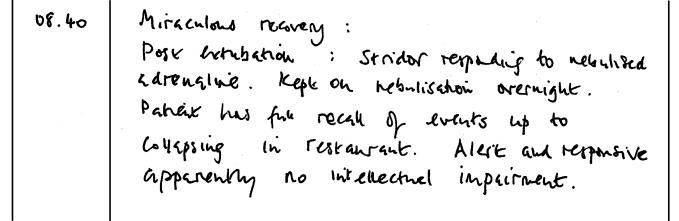 08.40 Miraculous recovery :
Post extubation : Stridor responding to nebulised
adrenaline. Kept on nebulisation overnight.
Patient has full recall of events up to
collapsing in restaurant. Alert and responsive
apparently no intellectual impairment.